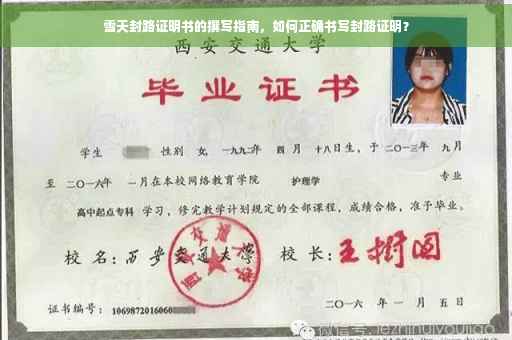 雪天封路证明书的撰写指南，如何正确书写封路证明？
西安交通大学
毕业证书
学生 性别 女，一九九二年 四月 十八日生，于二〇一三年 九月
至 二〇一六年 一月在本校网络教育学院 护理学 专业
高中起点专科 学习，修完教学计划规定的全部课程，成绩合格，准予毕业。
校名：西安交通大学 校长：王树国
证书编号：1069872016060
二〇一六年 一月 五日
微信号: jezhinuiyoujiao